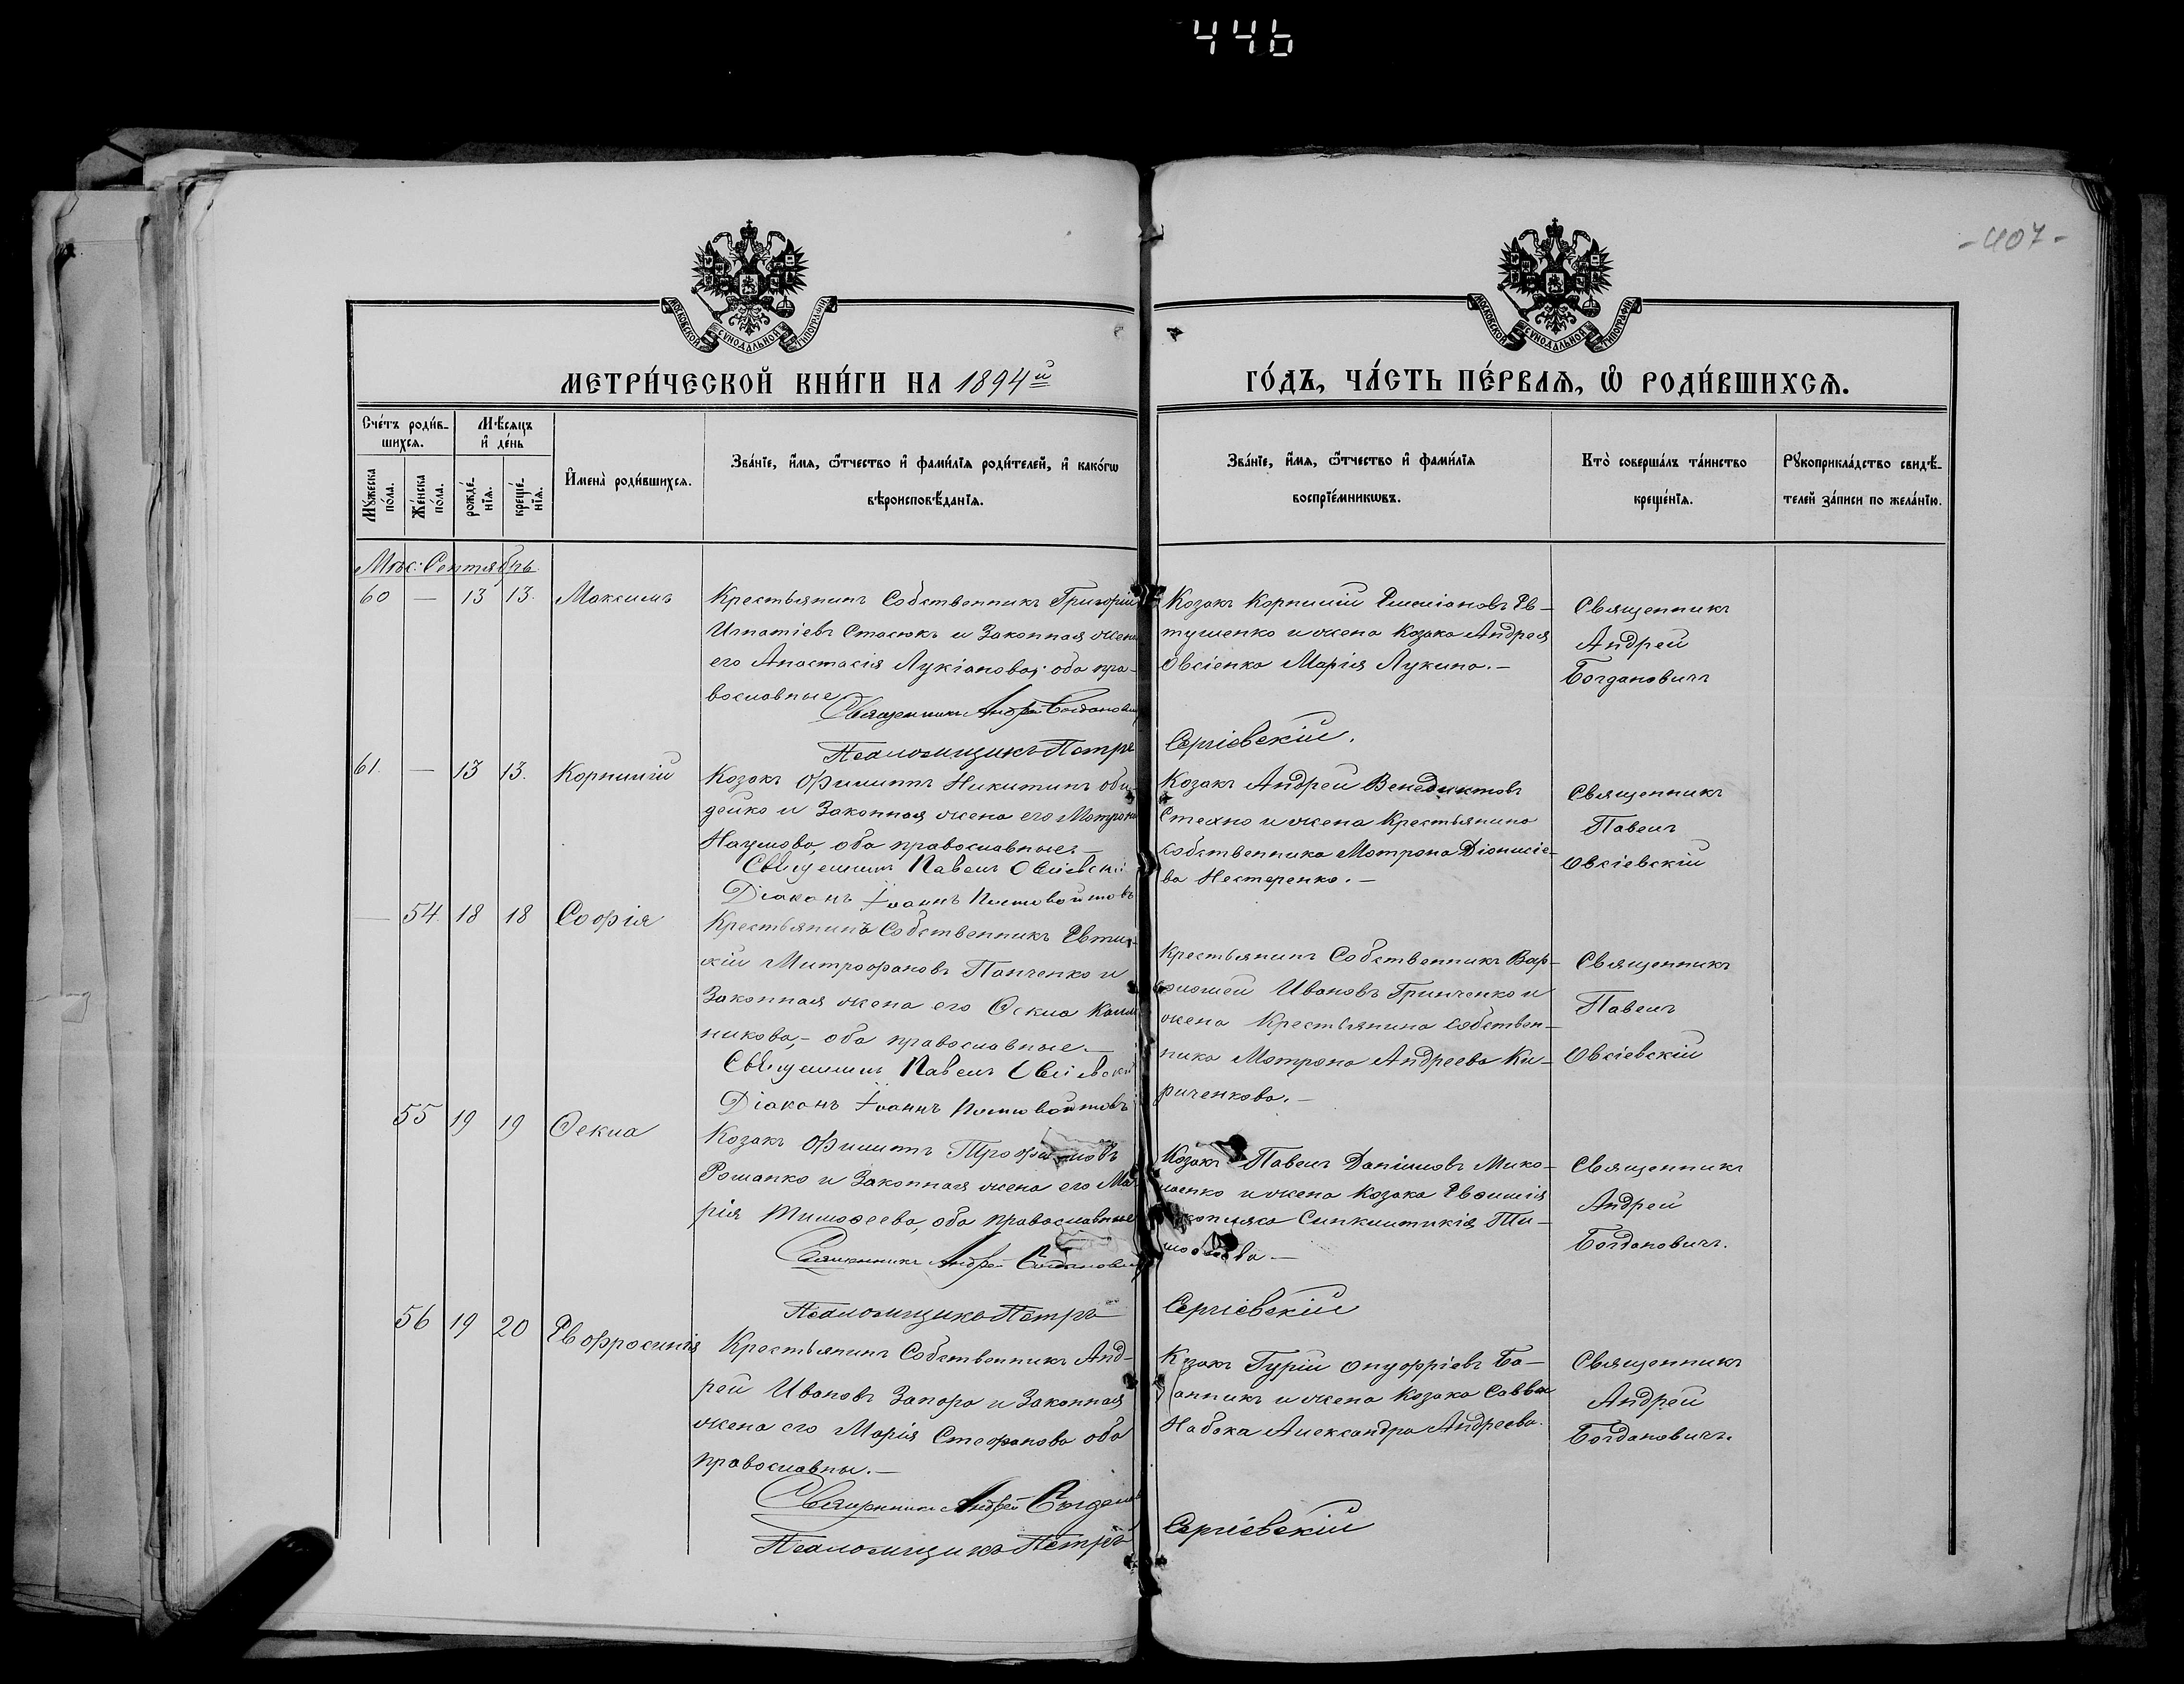 446
-407-
МОСКОВСКОЙ СѴНОДАЛЬНОЙ ТИПОГРАФІИ
МОСКОВСКОЙ СѴНОДАЛЬНОЙ ТИПОГРАФІИ
МЕТРИ́ЧЕСКОЙ КНИ́ГИ НА 1894й
ГО́ДЪ, ЧА́СТЬ ПЕ́РВАѦ, Ѡ҆ РОДИ́ВШИХСѦ.
Сче́тъ роди́в-
шихсѧ.
Мѣ́сѧцъ
и҆ де́нь
Мꙋ́жеска по́ла.
Же́нска по́ла.
рожде́-нїѧ.
креще́-нїѧ.
И҆мена̀ роди́вшихсѧ.
Зва́нїе, и҆́мѧ, ѻ҆́тчество и҆ фами́лїѧ роди́телей, и҆ како́гѡ
вѣроисповѣ́данїѧ.
Зва́нїе, и҆́мѧ, ѻ҆́тчество и҆ фами́лїѧ
воспрїе́мникѡвъ.
Кто̀ соверша́лъ та́инство
креще́нїѧ.
Рꙋкоприкла́дство свидѣ́-
телей за́писи по жела́нїю.
Мѣс: Сентябрь.
60 — 13 13. Максимъ
Крестьянинъ Собственникъ Григорій
Игнатіевъ Стасюкъ и Законная жена
его Анастасія Лукіанова; оба пра-
вославные
Священникъ Андрей Богданович
Псаломщикъ Петръ Сергіевскій.
Козакъ Корнилій Емиліановъ Ев-
тушенко и жена Козака Андрея
Овсіенка Марія Лукина.—
Священникъ
Андрей
Богдановичъ
61. — 13 13. Корнилій
Козакъ Филиппъ Никитинъ Оби-
дейко и Законная жена его Мотрона
Наумова, оба православные.—
Священникъ Павелъ Овсіевскій
Діаконъ Іоаннъ
Козакъ Андрей Венедиктовъ
Стехно и жена Крестьянина
собственника Мотрона Діонисіе-
ва Нестеренко.—
Священникъ
Павелъ
Овсіевскій
— 54. 18 18 Софія
Крестьянинъ Собственникъ Евти-
хій Митрофановъ Панченко и
Законная жена его Ѳекла Калин-
никова,- оба православные.—
Священникъ Павелъ Овсіевскій
Діаконъ Іоаннъ
Крестьянинъ Собственникъ Вар-
ѳоломей Ивановъ Гринченко и
жена Крестьянина собствен-
ника Мотрона Андреева Ки-
риченкова.—
Священникъ
Павелъ
Овсіевскій
55 19 19 Ѳекла
Козакъ Филиппъ Трофимовъ
Романко и Законная жена его Ма-
рія Тимоѳеева, оба православные
Священникъ Андрей Богданович
Псаломщикъ Петръ Сергіевскій
Козакъ Павелъ Даніиловъ Мико-
лаенко и жена Козака Евфимія
Синклитикія Ти-
моѳеева—
Священникъ
Андрей
Богдановичъ.
56 19 20 Евфросинія
Крестьянинъ Собственникъ Анд-
рей Ивановъ Запора и Законная
жена его Марія Стефанова оба
православны.—
Священникъ Андрей Богданов
Псаломщикъ Петръ Сергіевскій
Козакъ Гурій Онуфріевъ Ба-
анникъ и жена Козака Саввы
Набока Александра Андреева.
Священникъ
Андрей
Богдановичъ.